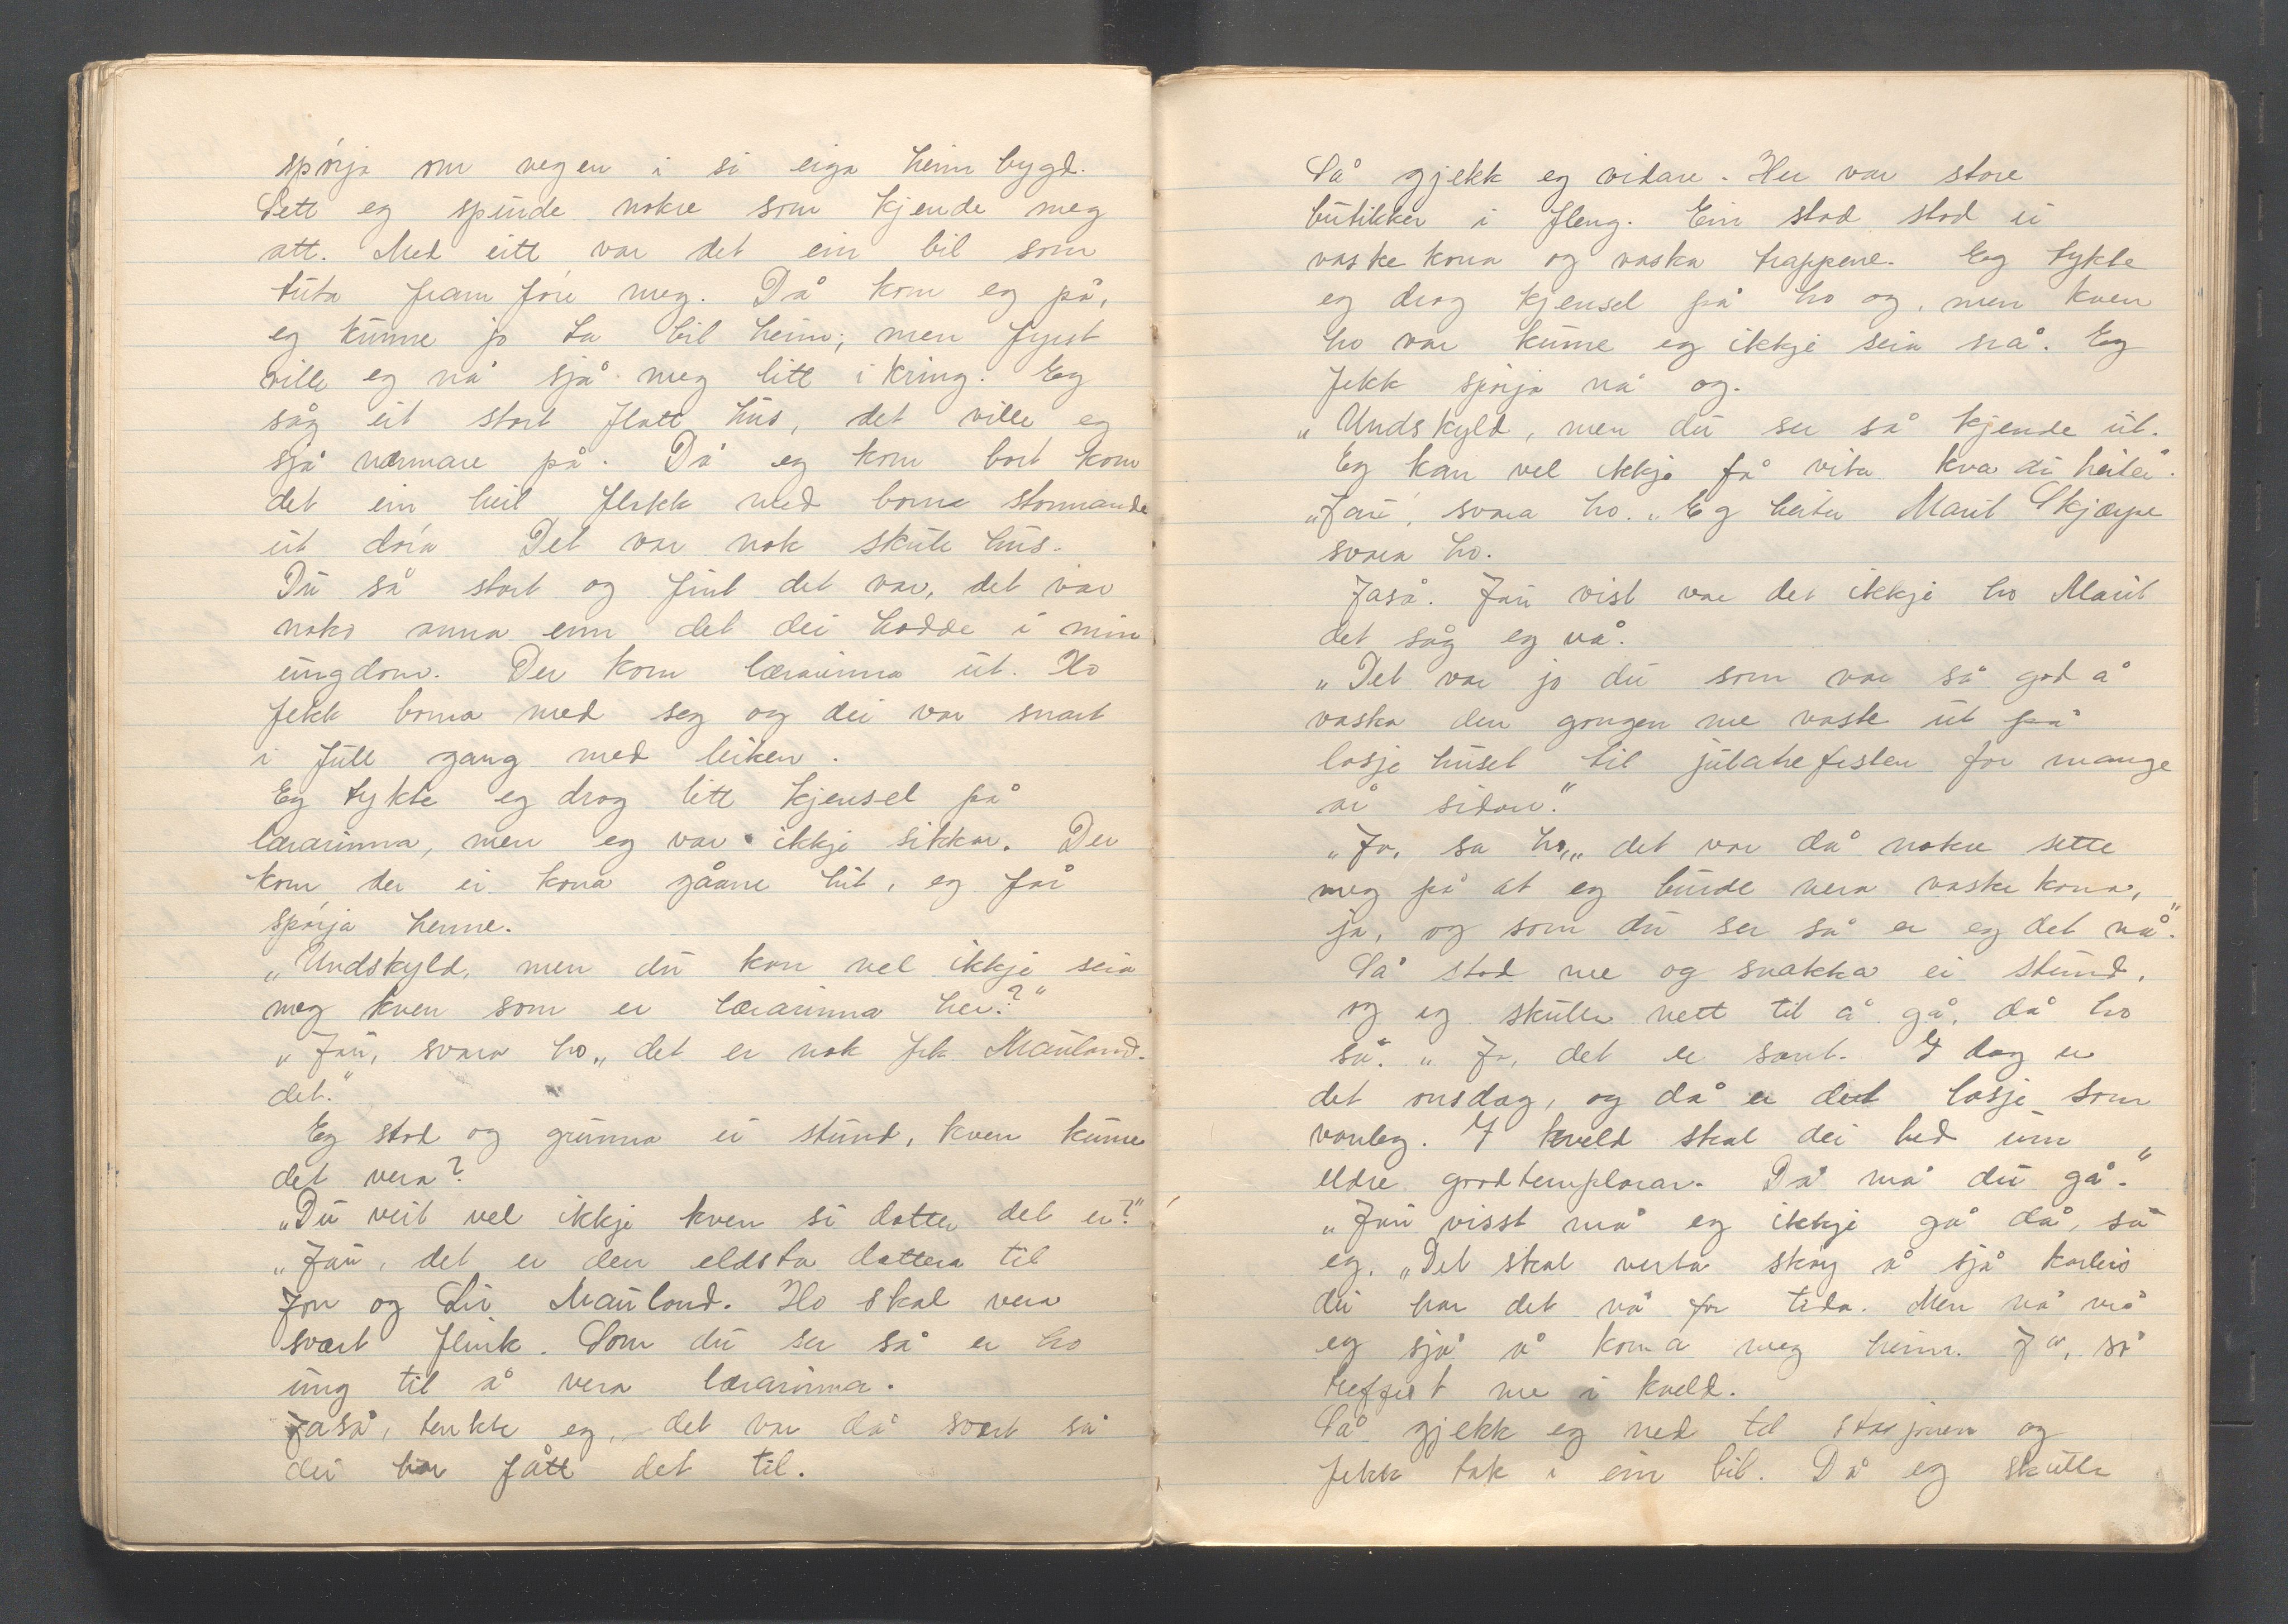 spørja om vegen i si eiga heim bygd.
Sett eg spurde nokre som kjende meg
att. Med eitt var det ein bil som
tuta fram fōre meg. Då kom eg på,
eg kunne jo ta bil heim; men fyrst
ville eg nå sjå meg litt i kring. Eg
såg eit stort flatt hus, det ville eg
sjå nærmare på. Då eg kom bort kom
det ein heil flokk med borna stormande
ut døra Det var nok skule hus.
Du så stort og fint det var, det var
noko anna enn det dei hadde i min
ungdom. Der kom lærarinna ut. Ho
fekk borna med seg og dei var snart
i full gang med leiken.
Eg tykte eg drog litt kjensel på
lærarinna, men eg var ikkje sikkar. Der
kom der ei kona gåane hit, eg får
spørja henne.
„Undskyld, men du kan vel ikkje seia
meg kven som er lærarinna her?"
„Jau, svara ho„ det er nok frk. Mauland.
det."
Eg stod og grunna ei stund, kven kunne
det vera?
„Du veit vel ikkje kven si dotter det er?"
„Jau, det er den eldsta dottera til
Jon og Siv Mauland. Ho skal vera
svært flink. Som du ser så er ho
ung til å vera lærarinna.
Jaså, tenkte eg, det var då svært så
dei har fått det til.
Så gjekk eg vidare. Her var store
butikker i fleng. Ein stad stod ei
vaske kona og vaska trappene. Eg tykte
eg drog kjensel på ho og, men kven
ho var kunne eg ikkje seia nå. Eg
fekk spørja nå og.
„Undskyld, men du ser så kjende ut.
Eg kan vel ikkje få vita kva du heiter".
„Jau, svara ho. „Eg heiter Marit Skjærpe
svara ho.
Jaså. Jau vist var det ikkje ho Marit
det såg eg nå.
„Det var jo du som var så god å
vaska den gongen me vaste ut på
losje huset til julatrefesten for mange
år sidan."
„Ja, sa ho,„ det var då nokre sette
meg på at eg burde vera vaske kona,
ja, og som du ser så er eg det nå."
Så stod me og snakka ei stund,
og eg skulle nett til å gå, då ho
sa. „ Ja, det er sant. I dag er
det onsdag, og då er det losje som
vanleg. I kveld skal dei bed um
eldre godtemplarar. Då må du gå."
„Jau visst må eg ikkje gå då, sa
eg. „Det skal verta skøy å sjå korleis
du har det nå for tida. Men nå må
eg sjå å koma meg heim. Ja, så
treffest me i kveld.
Så gjekk eg ned til stasjonen og
fekk tak i ein bil. Då eg skulle